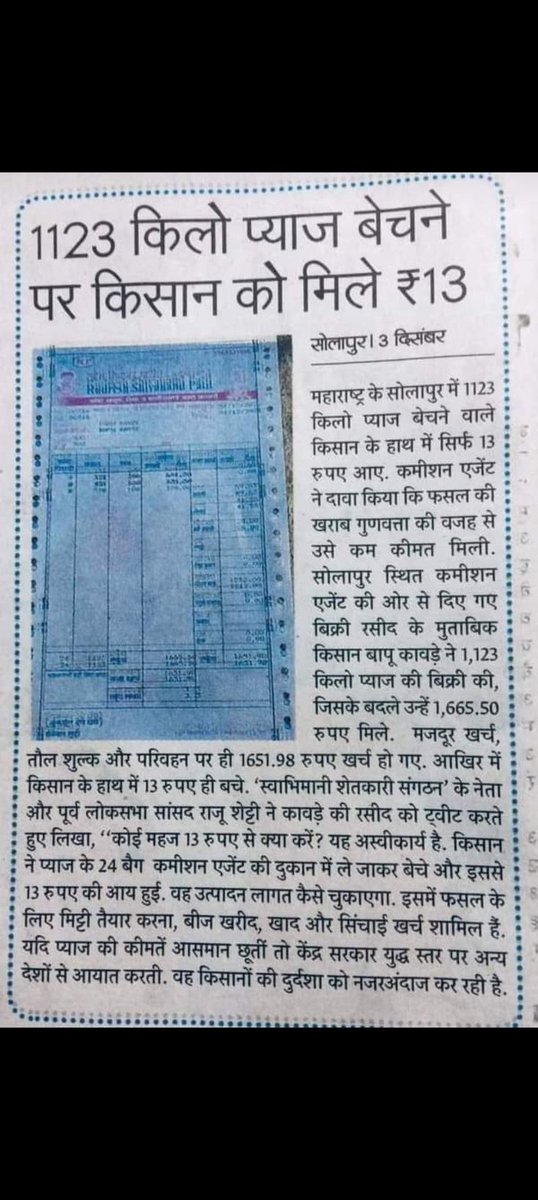 1123 किलो प्याज बेचने
पर किसान को मिले ₹13
सोलापुर। 3 दिसंबर
महाराष्ट्र के सोलापुर में 1123
किलो प्याज बेचने वाले
किसान के हाथ में सिर्फ 13
रुपए आए. कमीशन एजेंट
ने दावा किया कि फसल की
खराब गुणवत्ता की वजह से
उसे कम कीमत मिली.
सोलापुर स्थित कमीशन
एजेंट की ओर से दिए गए
बिक्री रसीद के मुताबिक
किसान बापू कावड़े ने 1,123
किलो प्याज की बिक्री की,
जिसके बदले उन्हें 1,665.50
रुपए मिले. मजदूर खर्च,
तौल शुल्क और परिवहन पर ही 1651.98 रुपए खर्च हो गए. आखिर में
किसान के हाथ में 13 रुपए ही बचे. ‘स्वाभिमानी शेतकारी संगठन’ के नेता
और पूर्व लोकसभा सांसद राजू शेट्टी ने कावड़े की रसीद को ट्वीट करते
हुए लिखा, ‘‘कोई महज 13 रुपए से क्या करें? यह अस्वीकार्य है. किसान
ने प्याज के 24 बैग कमीशन एजेंट की दुकान में ले जाकर बेचे और इससे
13 रुपए की आय हुई. वह उत्पादन लागत कैसे चुकाएगा. इसमें फसल के
लिए मिट्टी तैयार करना, बीज खरीद, खाद और सिंचाई खर्च शामिल हैं.
यदि प्याज की कीमतें आसमान छूतीं तो केंद्र सरकार युद्ध स्तर पर अन्य
देशों से आयात करती. वह किसानों की दुर्दशा को नजरअंदाज कर रही है.